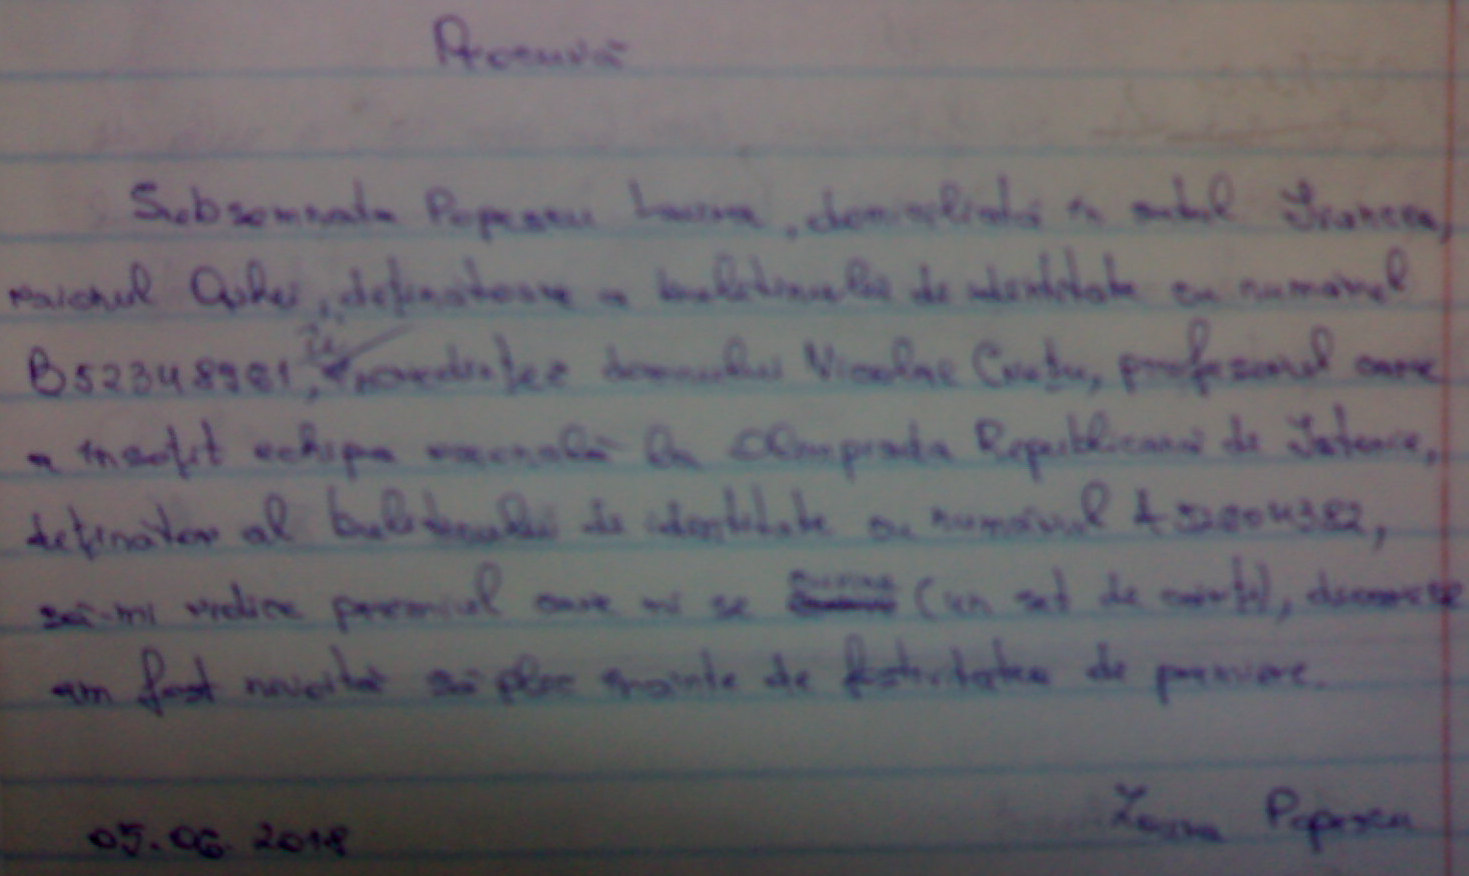 Procură
Subsemnata Popescu Laura, domiciliată în satul Ivancea,
raionul Orhei, deținătoare a buletinului de identitate cu numărul
B52348981, domnului Nicolae Crețu, profesorul care
a însoțit echipa raională la Olimpiada Republicană de Istorie,
deținător al buletinului de identitate cu numărul
să-mi ridice premiul care mi se (un set de cărți), deoarece
am fost nevoită să plec înainte de festivitatea de premiere.
05.06.2018 Laura Popescu